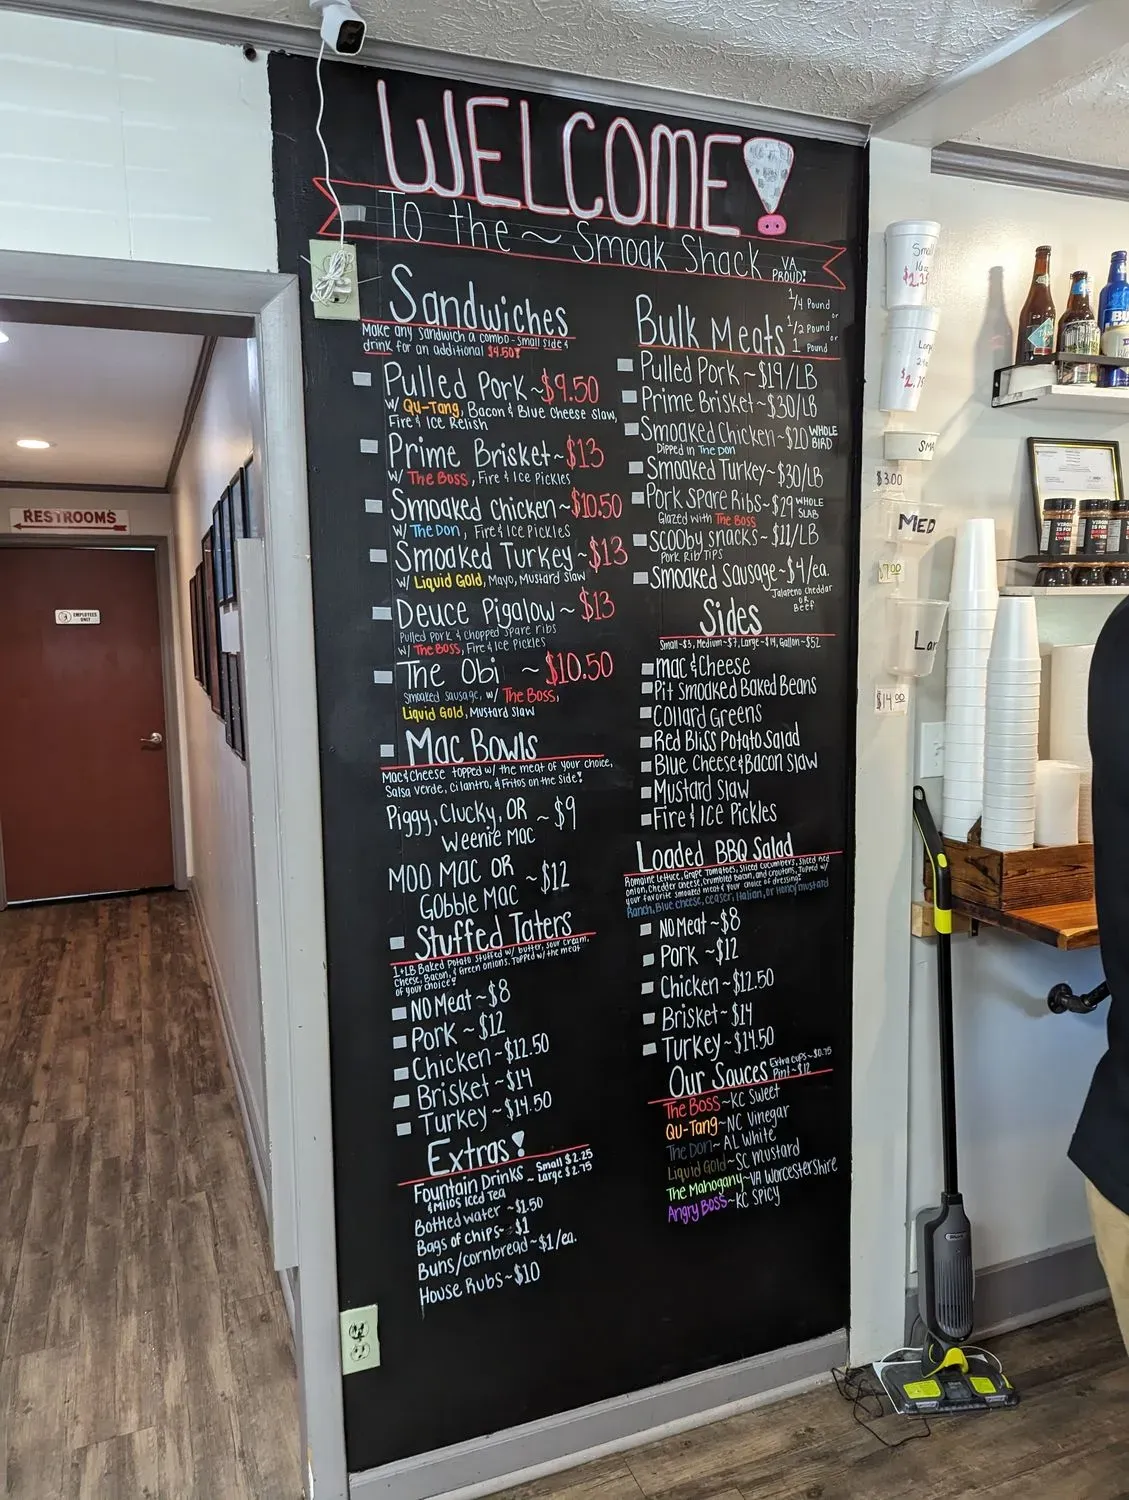 WELCOME!
To the ~ Smoak Shack VA PROUD!
Sandwiches
Make any sandwich a combo - small side &
drink for an additional $4.50!
Pulled Pork ~ $9.50
w/ Qu-Tang, Bacon & Blue Cheese slaw,
Fire & Ice Relish
Prime Brisket ~ $13
w/ The Boss, Fire & Ice Pickles
Smoaked Chicken ~ $10.50
w/ The Don, Fire & Ice Pickles
Smoaked Turkey ~ $13
w/ Liquid Gold, Mayo, Mustard Slaw
Deuce Pigalow ~ $13
Pulled Pork & Chopped Spare ribs
w/ The Boss, Fire & Ice Pickles
The Obi ~ $10.50
Smoaked Sausage, w/ The Boss,
Liquid Gold, Mustard Slaw
Mac Bowls
Mac & Cheese topped w/ the meat of your choice,
Salsa verde, cilantro, & Fritos on the side!
Piggy, Clucky, OR
Weenie Mac ~ $9
MOO MAC OR
Gobble Mac ~ $12
Stuffed Taters
1+LB Baked Potato stuffed w/ butter, sour cream,
Cheese, Bacon, & Green onions. Topped w/ the meat
of your choice!
No Meat ~ $8
Pork ~ $12
Chicken ~ $12.50
Brisket ~ $14
Turkey ~ $14.50
Extras!
Fountain Drinks ~ Small $2.25
& Milos Iced Tea ~ Large $2.75
Bottled water ~ $1.50
Bags of chips ~ $1
Buns/cornbread ~ $1/ea.
House Rubs ~ $10
Bulk Meats
1/4 Pound or
1/2 Pound or
1 Pound
Pulled Pork ~ $19/LB
Prime Brisket ~ $30/LB
Smoaked Chicken ~ $20 WHOLE BIRD
Dipped in The Don
Smoaked Turkey ~ $30/LB
Pork Spare Ribs ~ $29 WHOLE SLAB
Glazed with The Boss
Scooby Snacks ~ $11/LB
Pork Rib Tips
Smoaked Sausage ~ $4/ea.
Jalapeno Cheddar
OR
Beef
Sides
Small ~ $3, Medium ~ $7, Large ~ $14, Gallon ~ $52
Mac & Cheese
Pit Smoaked Baked Beans
Collard Greens
Red Bliss Potato Salad
Blue Cheese & Bacon Slaw
Mustard Slaw
Fire & Ice Pickles
Loaded BBQ Salad
Romaine lettuce, Grape Tomatoes, Sliced cucumbers, sliced red
onion, Chedder cheese, Crumbled bacon, and croutons, Topped w/
your favorite smoaked meat & your choice of dressing!
Ranch, Blue cheese, ceaser, Italian, or Honey mustard
No Meat ~ $8
Pork ~ $12
Chicken ~ $12.50
Brisket ~ $14
Turkey ~ $14.50
Our Sauces Extra cups ~ $0.75
Pint ~ $12
The Boss ~ KC Sweet
Qu-Tang ~ NC Vinegar
The Don ~ AL White
Liquid Gold ~ SC Mustard
The Mahogany ~ VA Worcestershire
Angry Boss ~ KC Spicy
RESTROOMS
EMPLOYEES
ONLY
Small
$3.00
MED
$7.00
$14.00